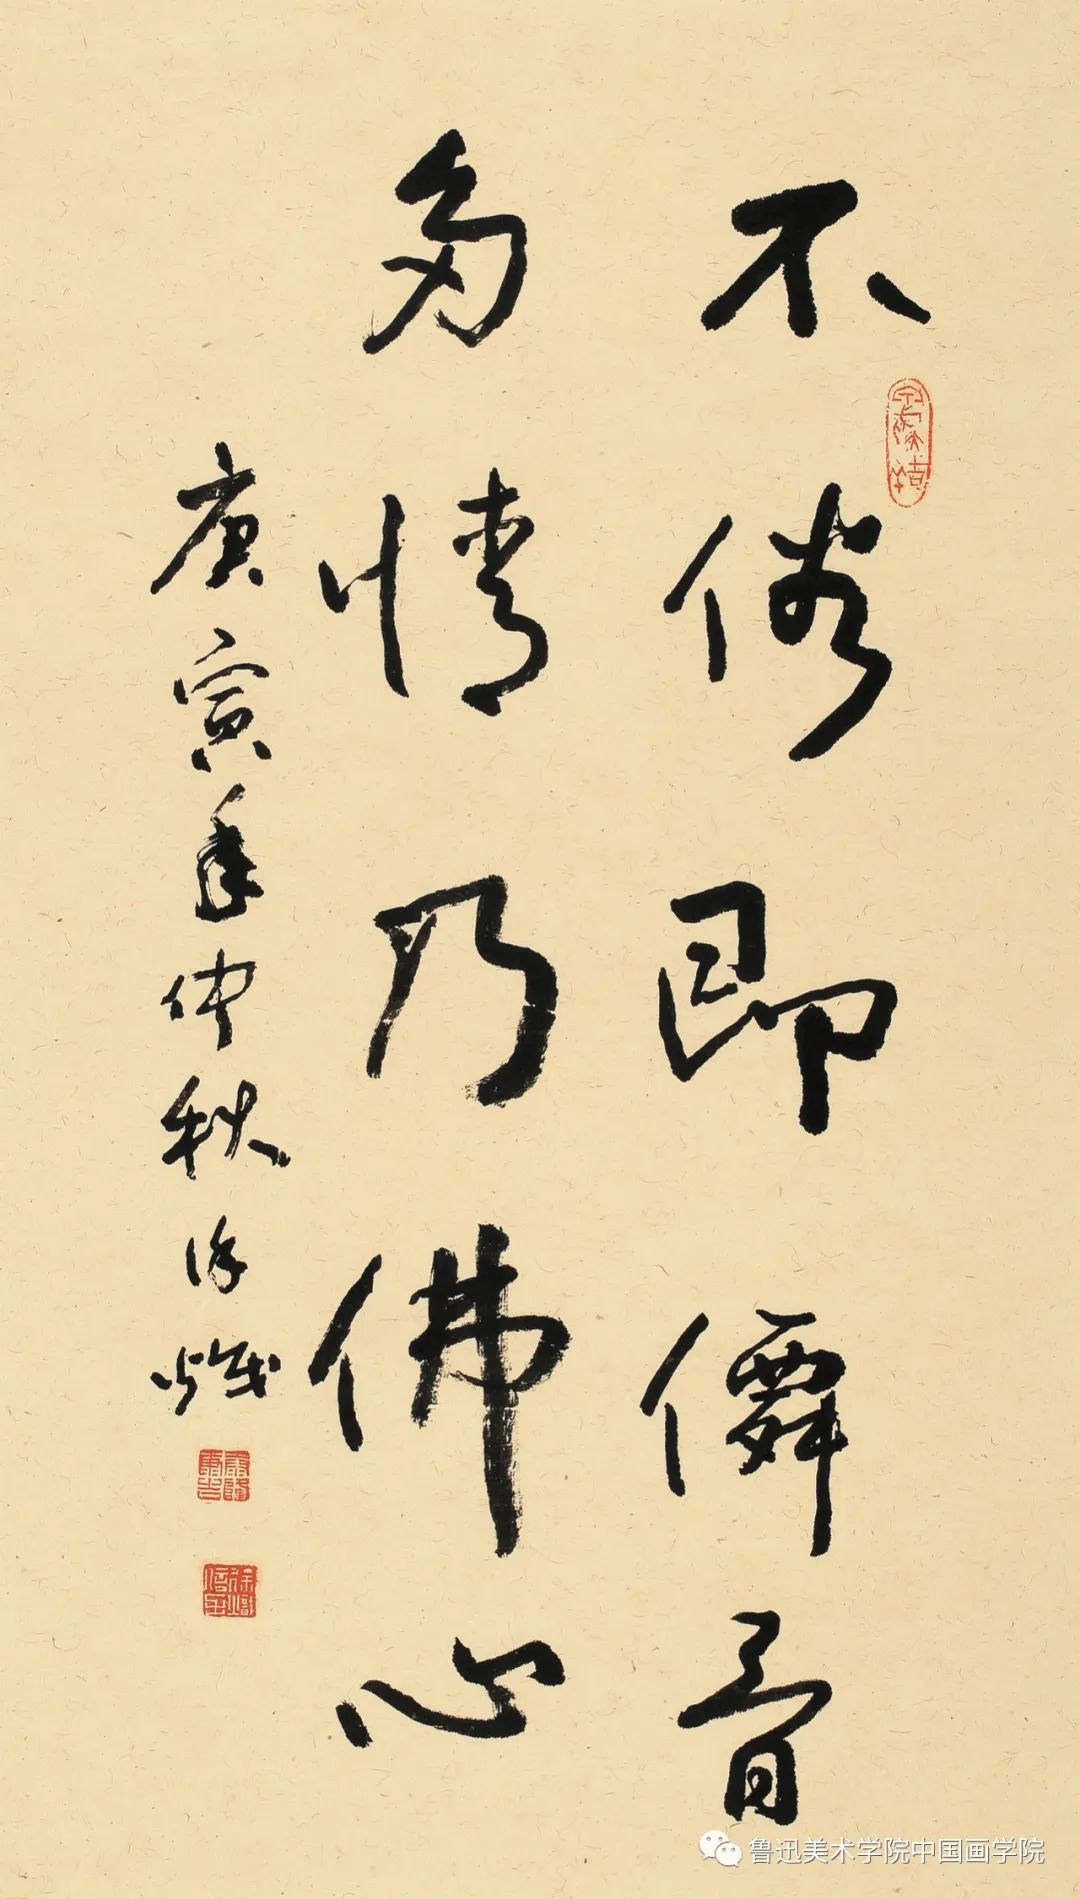 不俗即僊骨
多情乃佛心
庚寅年仲秋徐熾
鲁迅美术学院中国画学院